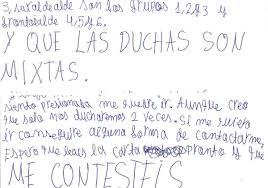 3, surxaldealde son los grupos 1,2y3 y
frontalde 4,5y6.
Y QUE LAS DUCHAS SON
MIXTAS.
siento presionaba me quiero ir. Aunque creo
que solo nos ducharemos 2 veces. Si me quieto
ir conseguire alguna forma de contactarme,
Espero que leais la carta pronto y que
ME CONTESTEIS